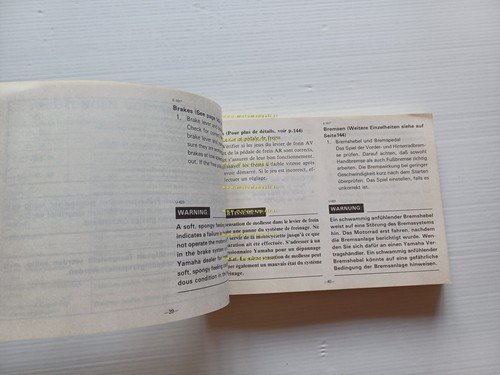 Brakes (See page
1. Brake lever and
Check for correct
brake lever and
sure they are
brakes at low
out. If the
WARNING:
A soft, spongy feeling
indicates a failure
not operate the motorcycle
in the brake system
Yamaha dealer for
soft, spongy feeling
dous condition in the
—39—
(Pour plus de détails, voir p.144)
levier et pédale de frein
vérifier si les jeu du levier de frein AV
de la pédale de frein AR sont corrects.
s'assurer de leur bon fonctionnement.
les freins à faible vitesse après
avoir démarré. Si le jeu est incorrect, ef-
fectuer un réglage.
sensation de mollesse dans le levier de frein
une panne du système de freinage. Ne
se servir de la motocyclette jusqu'à ce que
ation ait été effectuée. S'adresser à un
concessionnaire Yamaha pour un dépannage
La même sensation de mollesse peut
également un mauvais état du système
de freinage.
Bremsen (Weitere Einzelheiten siehe auf
Seite 144)
1. Bremshebel und Bremspedal
Das Spiel der Vorder- und Hinterradbrem-
se prüfen. Darauf achten, daß sowohl
Handbremse als auch Fußbremse richtig
arbeiten. Die Bremswirkung bei geringer
Geschwindigkeit kurz nach dem Starten
überprüfen. Das Spiel einstellen, falls es
unkorrekt ist.
WARNUNG
Ein schwammig anfühlender Bremshebel
weist auf eine Störung des Bremssystems
hin. Das Motorrad erst fahren, nachdem
die Bremsanlage berichtigt wurde. Wen-
den Sie sich dafür an einen Yamaha Ver-
tragshändler. Ein schwammig anfühlender
Bremshebel könnte auf eine gefährliche
Bedingung der Bremsanlage hinweisen.
—40—